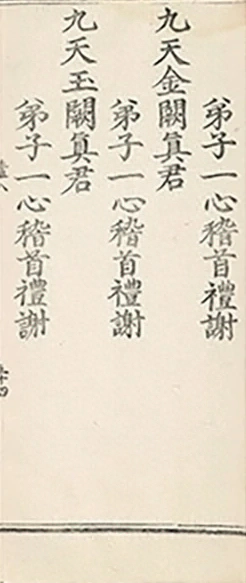 弟子一心稽首禮謝
九天金闕眞君
弟子一心稽首禮謝
九天玉闕眞君
弟子一心稽首禮謝